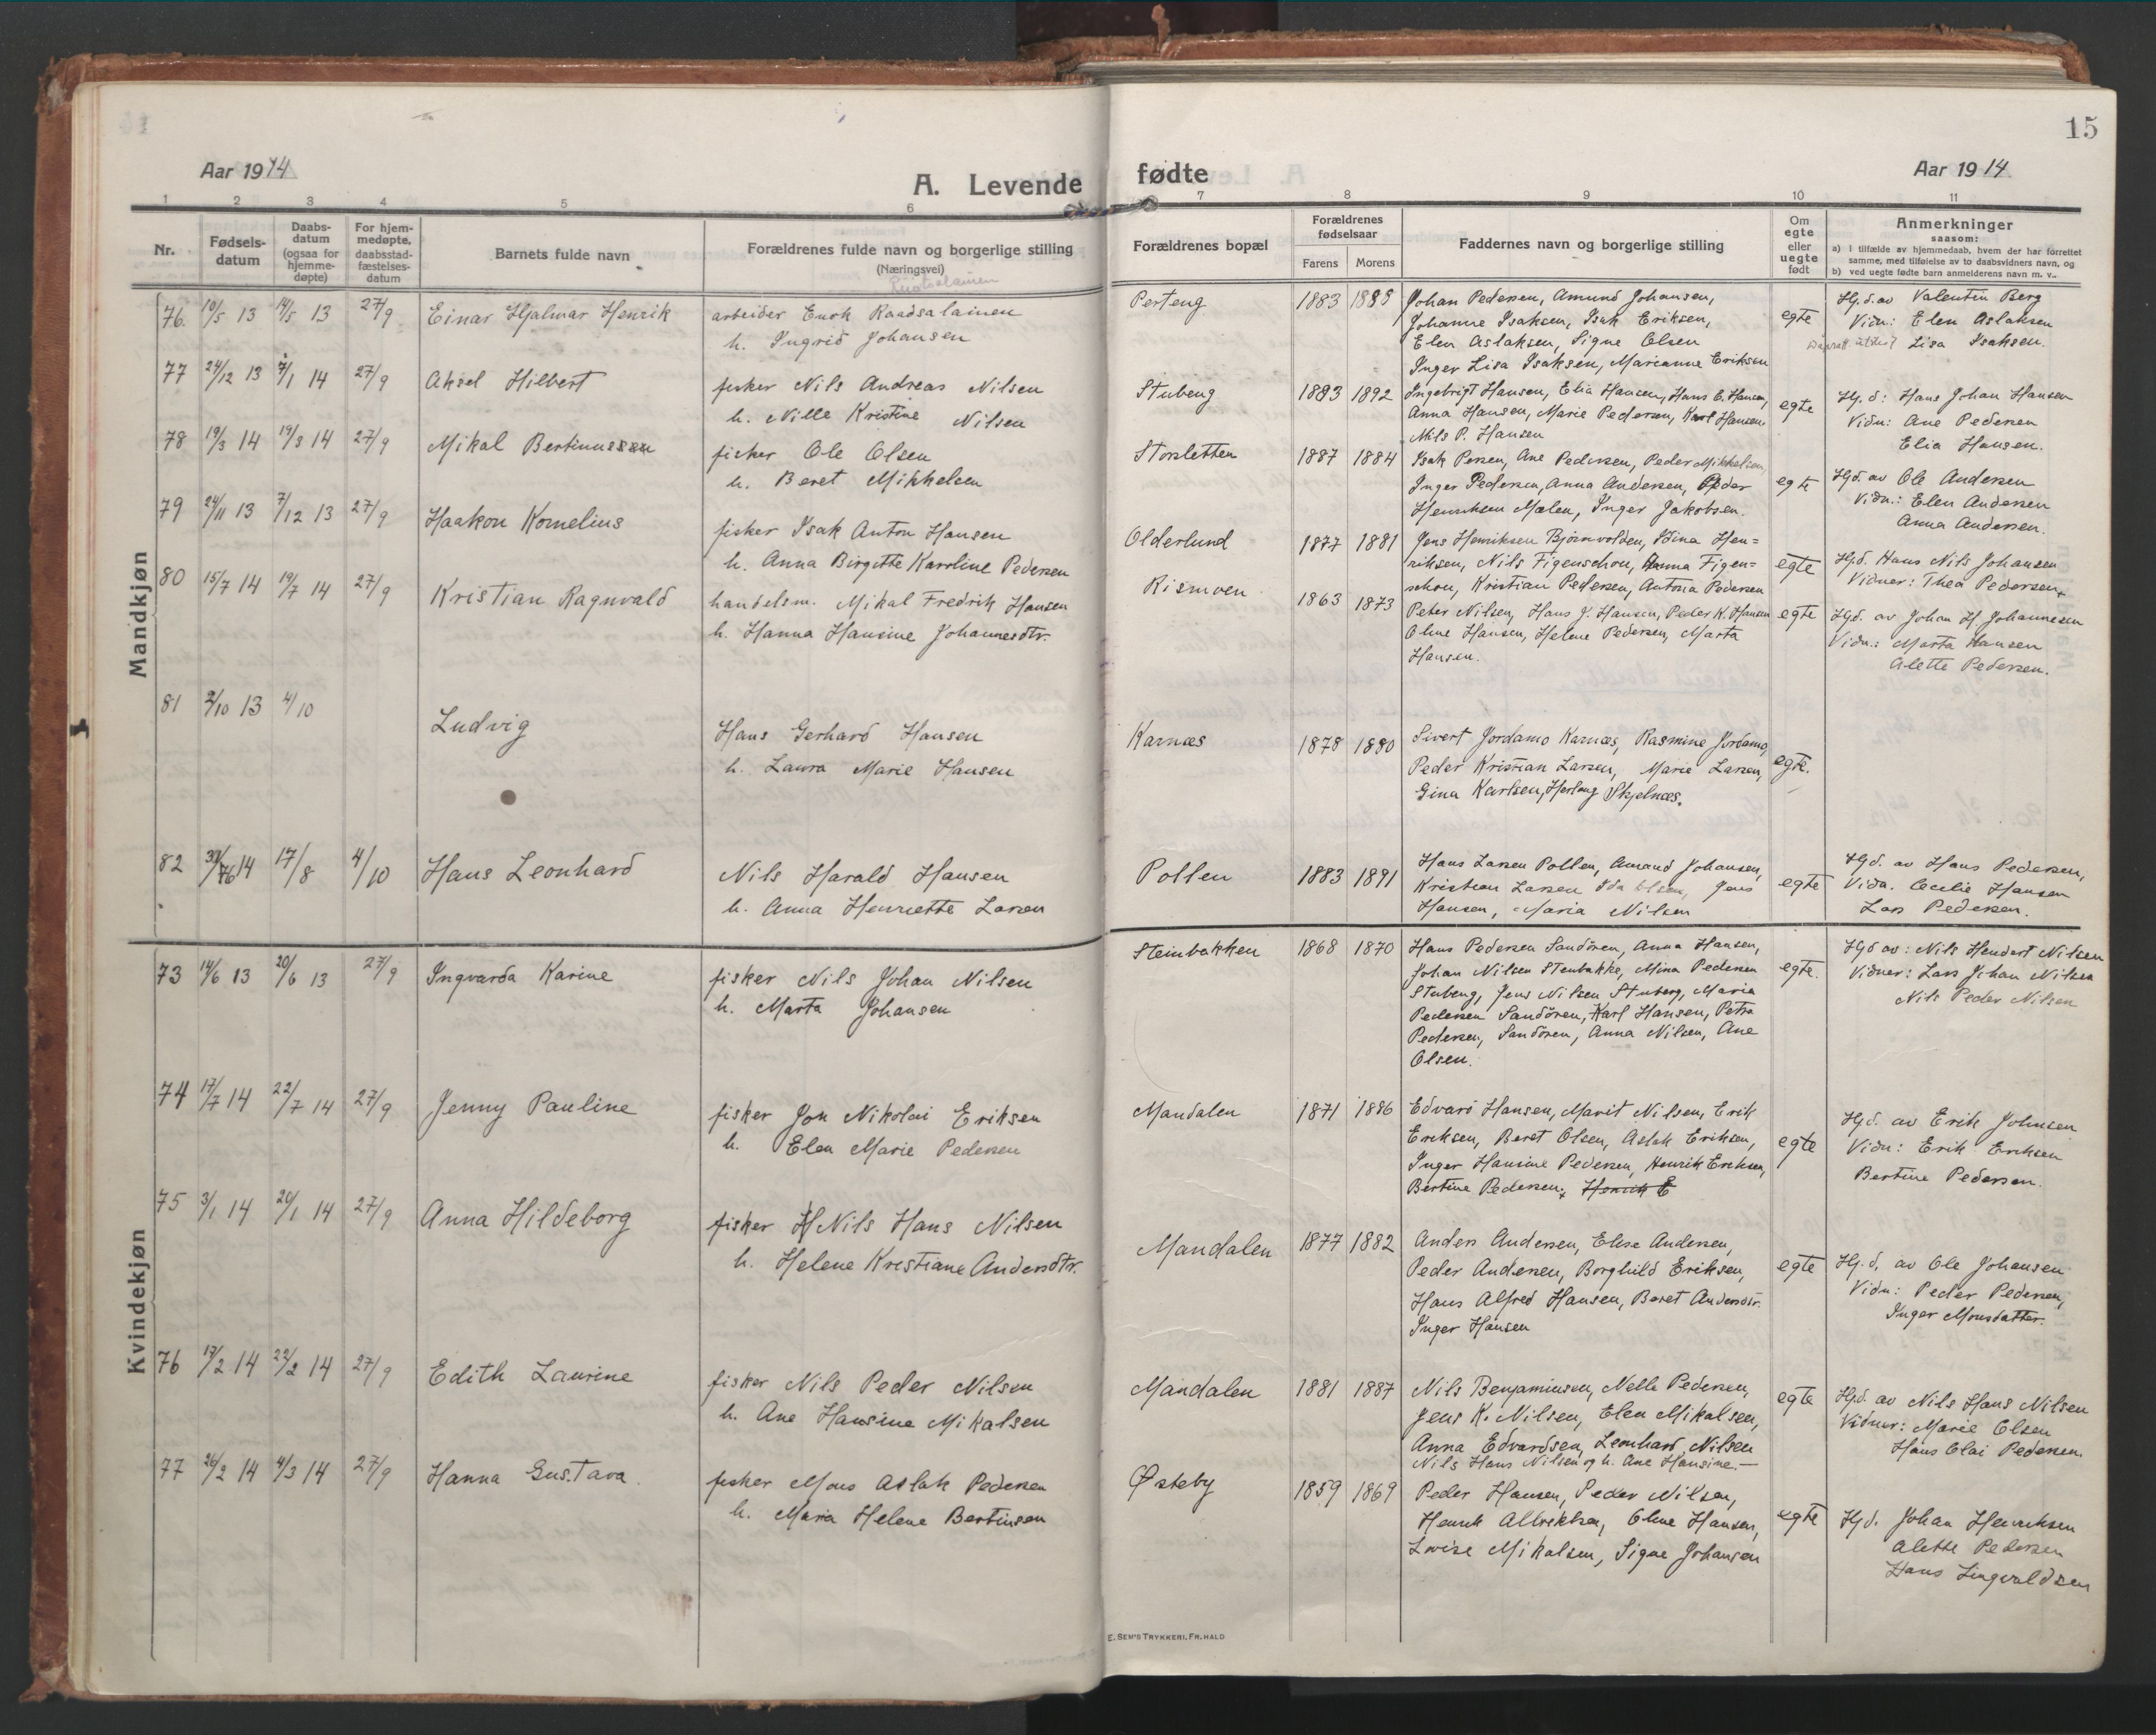 15
Aar 1914
A. Levende fødte
Aar 1914
1 2 3 4 5 6 7 8 9 10 11
Nr.
Fødsels-
datum
Daabs-
datum
(ogsaa for
hjemme-
døpte)
For hjem-
medøpte,
daabsstad-
fæstelses-
datum
Barnets fulde navn
Forældrenes fulde navn og borgerlige stilling
(Næringsvei)
Forældrenes bopæl
Forældrenes
fødselsaar
Farens Morens
Faddernes navn og borgerlige stilling
Om
egte
eller
uegte
født
Anmerkninger
saasom:
a) I tilfælde av hjemmedaab, hvem der har forrettet
samme, med tilføielse av to daabsvidners navn, og
b) ved uegte fødte barn anmelderens navn m. v..
Mandkjøn
76. 10/5 13 14/5 13 27/9 Einar Hjalmar Henrik
arbeider Enok Randsalainen
h. Ingrid Johansen
Perteng 1883 1888
Johan Pedersen, Amund Johansen,
Johanne Isaksen, Isak Eriksen,
Elen Aslaksen, Signe Olsen
Inger Lisa Isaksen, Marianne Eriksen
egte
Hj.d. av Valentin Berg
Vidn: Elen Aslaksen
Lisa Isaksen.
77 24/12 13 4/1 14 27/9 Aksel Hilbert
fisker Nils Andreas Nilsen
h. Nille Kristine Nilsen
Stubeng 1893 1892
Ingebrigt Hansen, Elia Hansen, Hans E. Hansen,
Anna Hansen, Marie Pedersen, Karl Hansen
Nils P. Hansen
egte
Hj.d: Hans Johan Hansen
Vidn: Ane Pedersen
Elia Hansen.
78 19/3 14 19/3 14 27/9 Mikal Bertinussen
fisker Ole Olsen
h. Beret Mikkelsen
Storsletten 1887 1884
Isak Persen, Ane Pedersen, Peder Mikkelsen,
Inger Pedersen, Anna Andersen, Peder
Henriksen Mælen, Inger Jakobsen.
egte
Hjd. av Ole Andersen
Vidn.: Elen Andersen
Anna Andersen.
79 24/11 13 7/12 13 27/9 Haakon Kornelius
fisker Isak Anton Hansen
h. Anna Birgitte Karoline Pedersen
Olderlund 1877 1881
Jens Henriksen Bjørnvolden, Stina Hen=
riksen, Nils Figenschou, Hanna Figen=
schou, Kristian Pedersen, Antona Pedersen
egte
Hjd. Hans Nils Johansen
Vidner: Thea Pedersen
80 15/7 14 19/7 14 27/9 Kristian Ragnvald
handelsm. Mikal Fredrik Hansen
h. Hanna Hansine Johannesdtr.
Rismoen 1863 1873
Peter Nilsen, Hans J. Hansen, Peder K. Hansen
Oline Hansen, Helene Pedersen, Marta
Hansen.
egte
Hjd. av Johan H. Johannesen
Vidn.: Marta Hansen
Alette Pedersen.
81 2/10 13 4/10 Ludvig
Hans Gerhard Hansen
h. Laura Marie Hansen
Karnæs 1878 1880
Sivert Jordamo Karnæs, Rasmine Jordamo,
Peder Kristian Larsen, Marie Larsen,
Gina Karlsen, Herlaug Skjelnæs.
egte.
82 14 17/8 4/10 Hans Leonhard
Nils Harald Hansen
h. Anna Henriette Larsen
Pollen 1883 1891
Hans Larsen Pollen, Amand Johansen,
Kristian Larsen Ida Olsen, Jens
Hansen, Maria Nilsen
egte
Hjd. av Hans Pedersen,
Vidn. Cecelie Hansen
Lars Pedersen.
Kvindekjøn
73 14/6 13 20/6 13 27/9 Ingvarda Karine
fisker Nils Johan Nilsen
h. Marta Johansen
Steinbakken 1868 1870
Hans Pedersen Sandøren, Anna Hansen,
Johan Nilsen Stenbakke, Mina Pedersen
Stubeng, Jens Nilsen Stuberg, Maria
Pedersen Sandøren, Karl Hansen, Petra
Pedersen, Sandøren, Anna Nilsen, Ane
Olsen.
egte.
Hjd av: Nils Hendart Nilsen
Vidner: Lars Johan Nilsen
Nils Peder Nilsen
74 17/7 14 22/7 14 27/9 Jenny Pauline
fisker Jon Nikolai Eriksen
h. Elen Marie Pedersen
Mandalen 1871 1886
Edvard Hansen, Marit Nilsen, Erik
Eriksen, Beret Olsen, Aslak Eriksen,
Inger Hansine Pedersen, Henrik Eriksen,
Bertine Pedersen. Henrik E
egte
Hjd. av Erik Johnsen
Vidn: Erik Eriksen
Bertine Pedersen.
75 3/1 14 20/1 14 27/9 Anna Hildeborg
fisker H Nils Hans Nilsen
h. Helene Kristiane Andersdtr.
Mandalen 1877 1882
Anders Andersen, Elise Andersen,
Peder Andersen, Borghild Eriksen,
Hans Alfred Hansen, Beret Andersdtr.
Inger Hansen
egte
Hj.d, av Ole Johansen
Vidn: Peder Pedersen,
Inger Monsdatter.
76 17/2 14 22/2 14 27/9 Edith Laurine
fisker Nils Peder Nilsen
h. Ane Hansine Mikalsen
Mandalen 1881 1887
Nils Benjaminsen, Nelle Pedersen,
Jens K. Nilsen, Elen Mikalsen,
Anna Edvardsen, Leonhard Nilsen
Nils Hans Nilsen og h. Ane Hansine.—
egte
Hjd. av Nils Hans Nilsen
Vidner: Marie Olsen
Hans Olai Pedersen.
77 26/2 14 4/3 14 27/9 Hanna Gustava.
fisker Mons Aslak Pedersen
h. Maria Helene Bertinsen
Østeby 1859 1869
Peder Hansen, Peder Nilsen,
Henrik Albrektsen, Oline Hansen,
Lovise Mikalsen, Signe Johansen
egte
Hjd. Johan Henriksen
Alette Pedersen
Hans Lingvaldsen
E. Sem's Trykkeri, Fr.hald